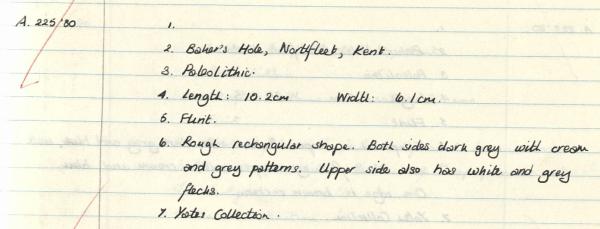 A. 225/80 1.
2. Baker's Hole, Northfleet, Kent.
3. Paleolithic.
4. Length: 10.2cm Width: 6.1cm.
5. Flint.
6. Rough rectangular shape. Both sides dark grey with cream
and grey patterns. Upper side also has white and grey
flecks.
7. Yates Collection.